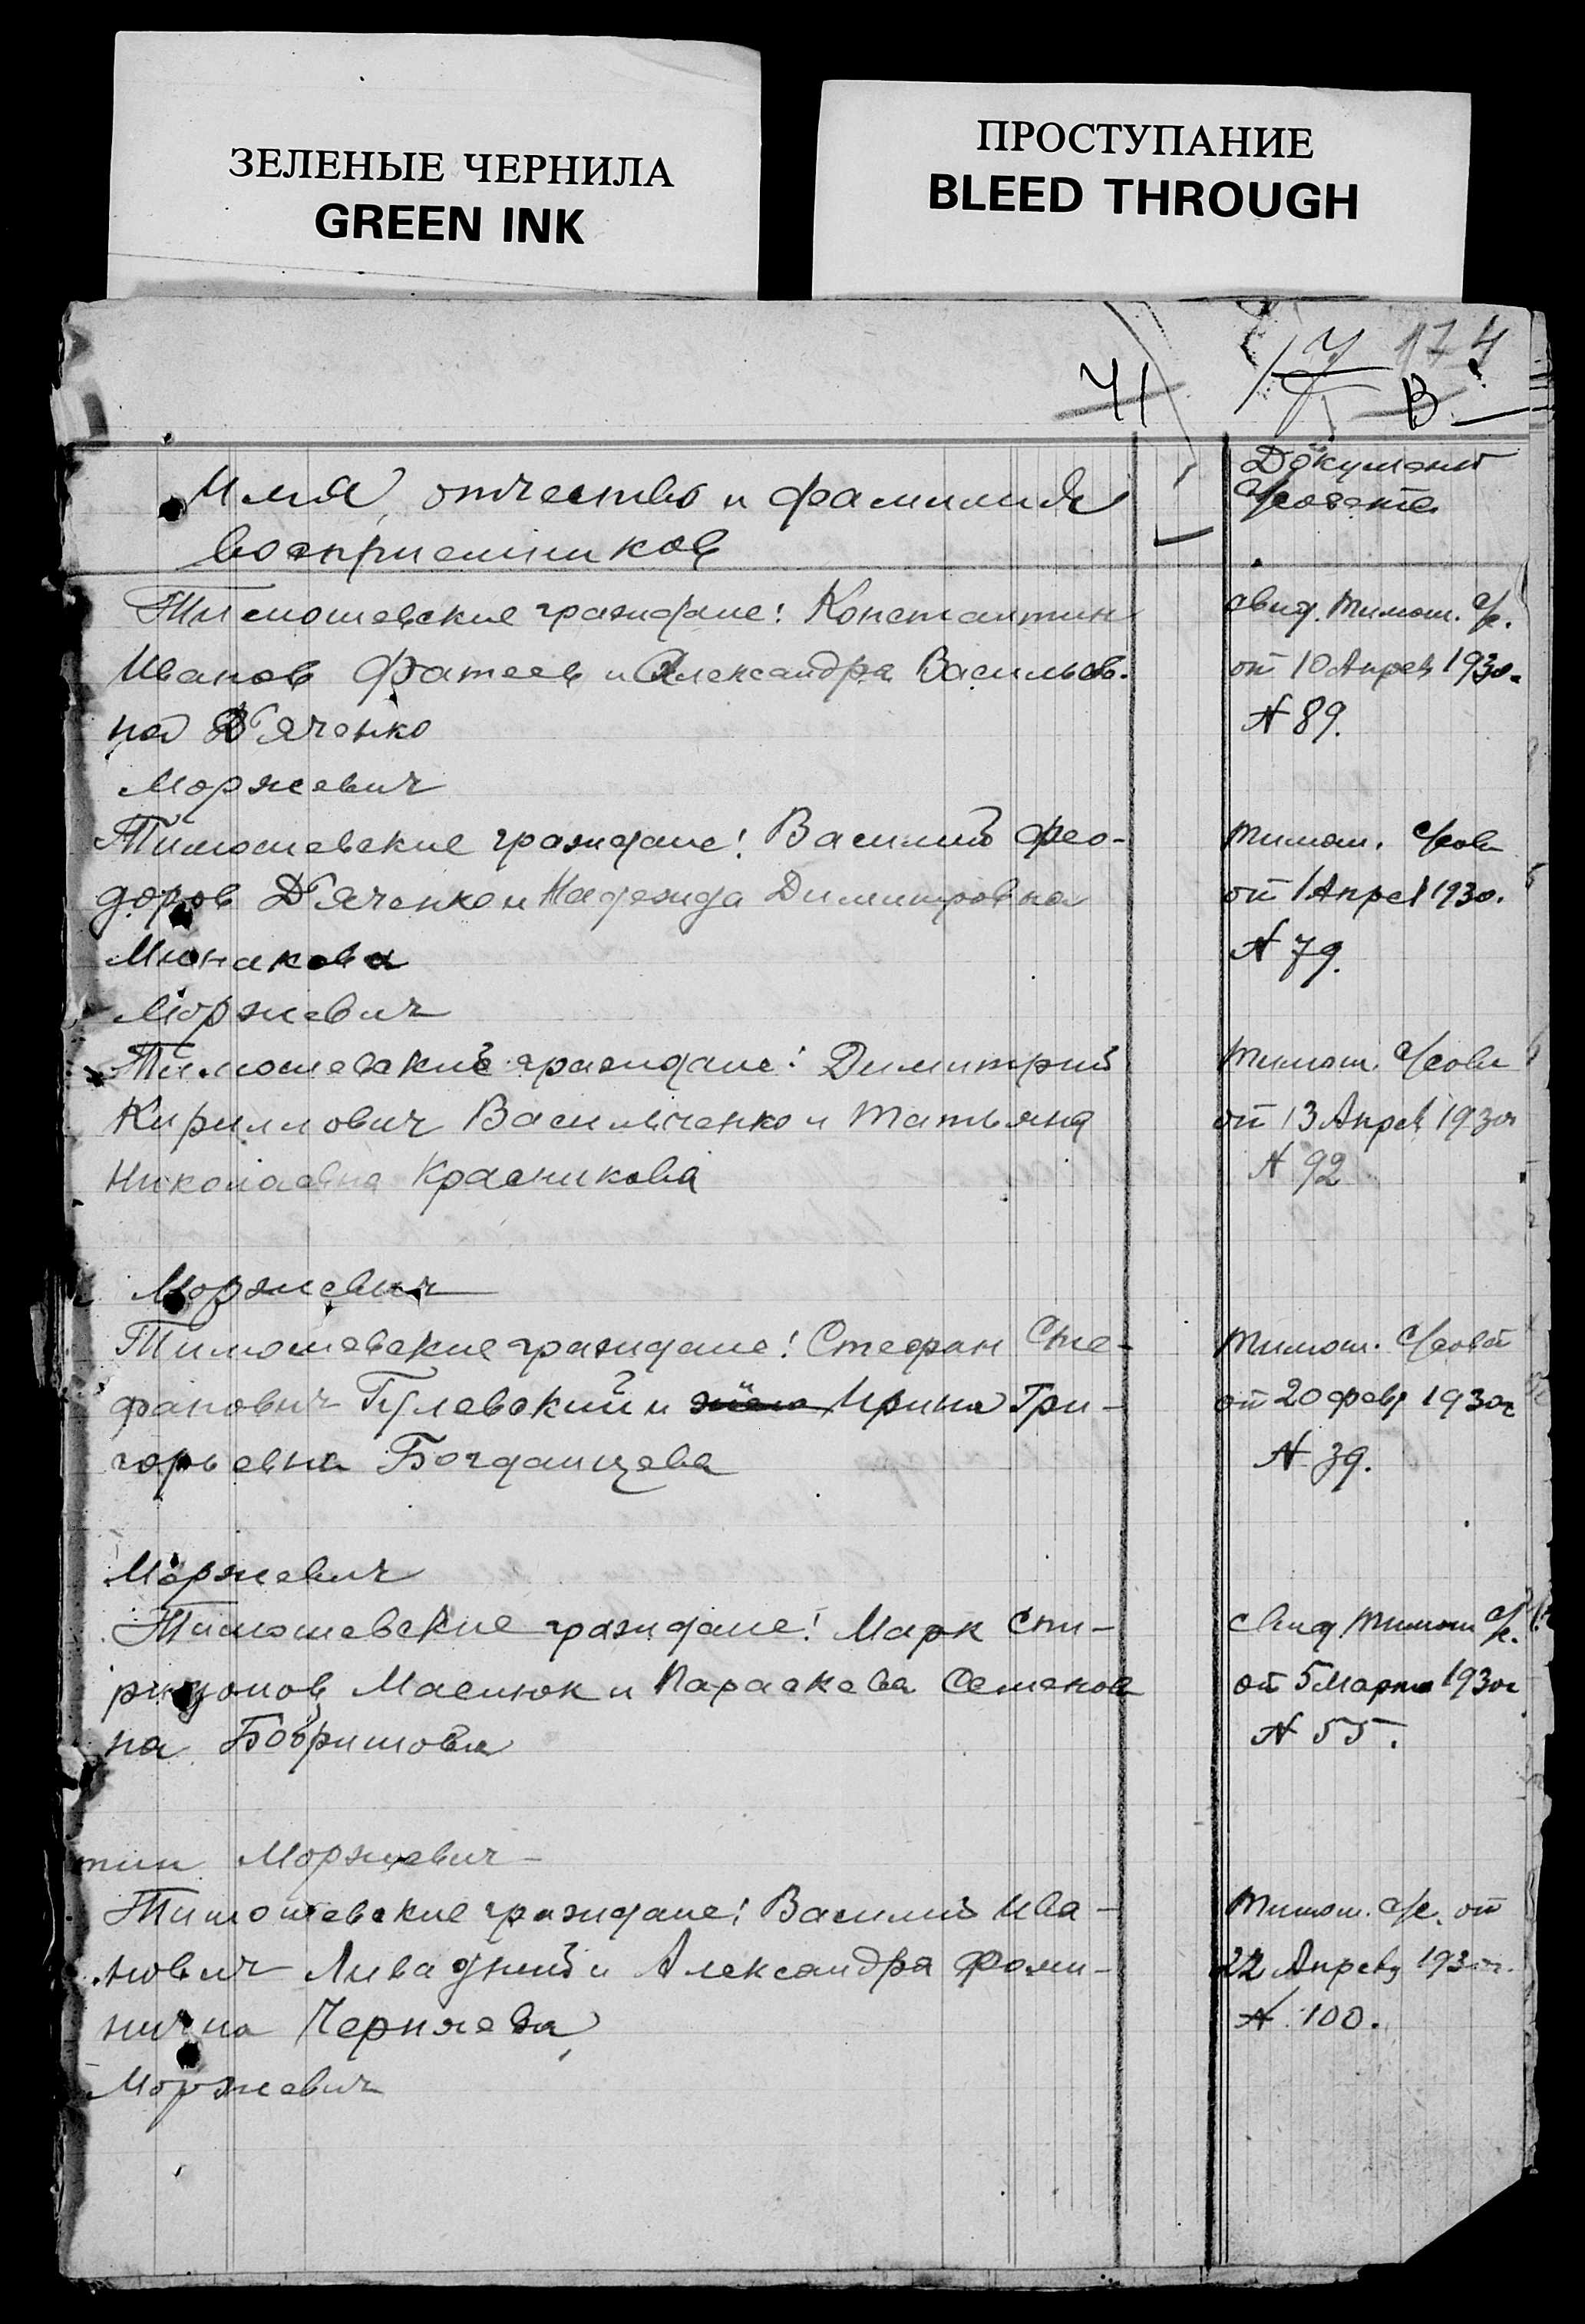 ЗЕЛЕНЫЕ ЧЕРНИЛА
GREEN INK
ПРОСТУПАНИЕ
BLEED THROUGH
174
41
В
Имя, отчество и фамилия
восприемников
Документ
с/совета
Тимошевские граждане: Константин
Иванов Фатеев и Александра Васильев-
на Д'яченко
Моржевич
свид. Тимош. с/с.
от 10 Апреля 1930.
№ 89.
Тимошевские граждане: Василий Фео-
доров Д'яченко и Надежда Димитровна
Минакова
Моржевич
Тимош. с/сов
от 1 Апрел 1930.
№ 79.
Тимошевские граждане: Димитрий
Кириллович Васильченко и Татьяна
Николаевна Красникова
Моржевич
Тимош. с/сов
от 13 Апрел 1930г
№ 92
Тимошевские граждане: Стефан Сте-
фанович Гулевский и Ирина Гри-
горьевна Богданцева
Моржевич
Тимош. с/совет
от 20 февр 1930г
№ 39.
Тимошевские граждане: Марк Спи-
ридонов Маслюк и Параскева Семенов
на Бобришова
тин Моржевич
свид Тимош с/с.
от 5 Марта 1930г
№ 55.
Тимошевские граждане: Василий Ива-
нович Ливадний и Александра Фоми-
нична Черняева
Моржевич
Тимош. с/с. от
22 Апреля 1930г.
№ 100.